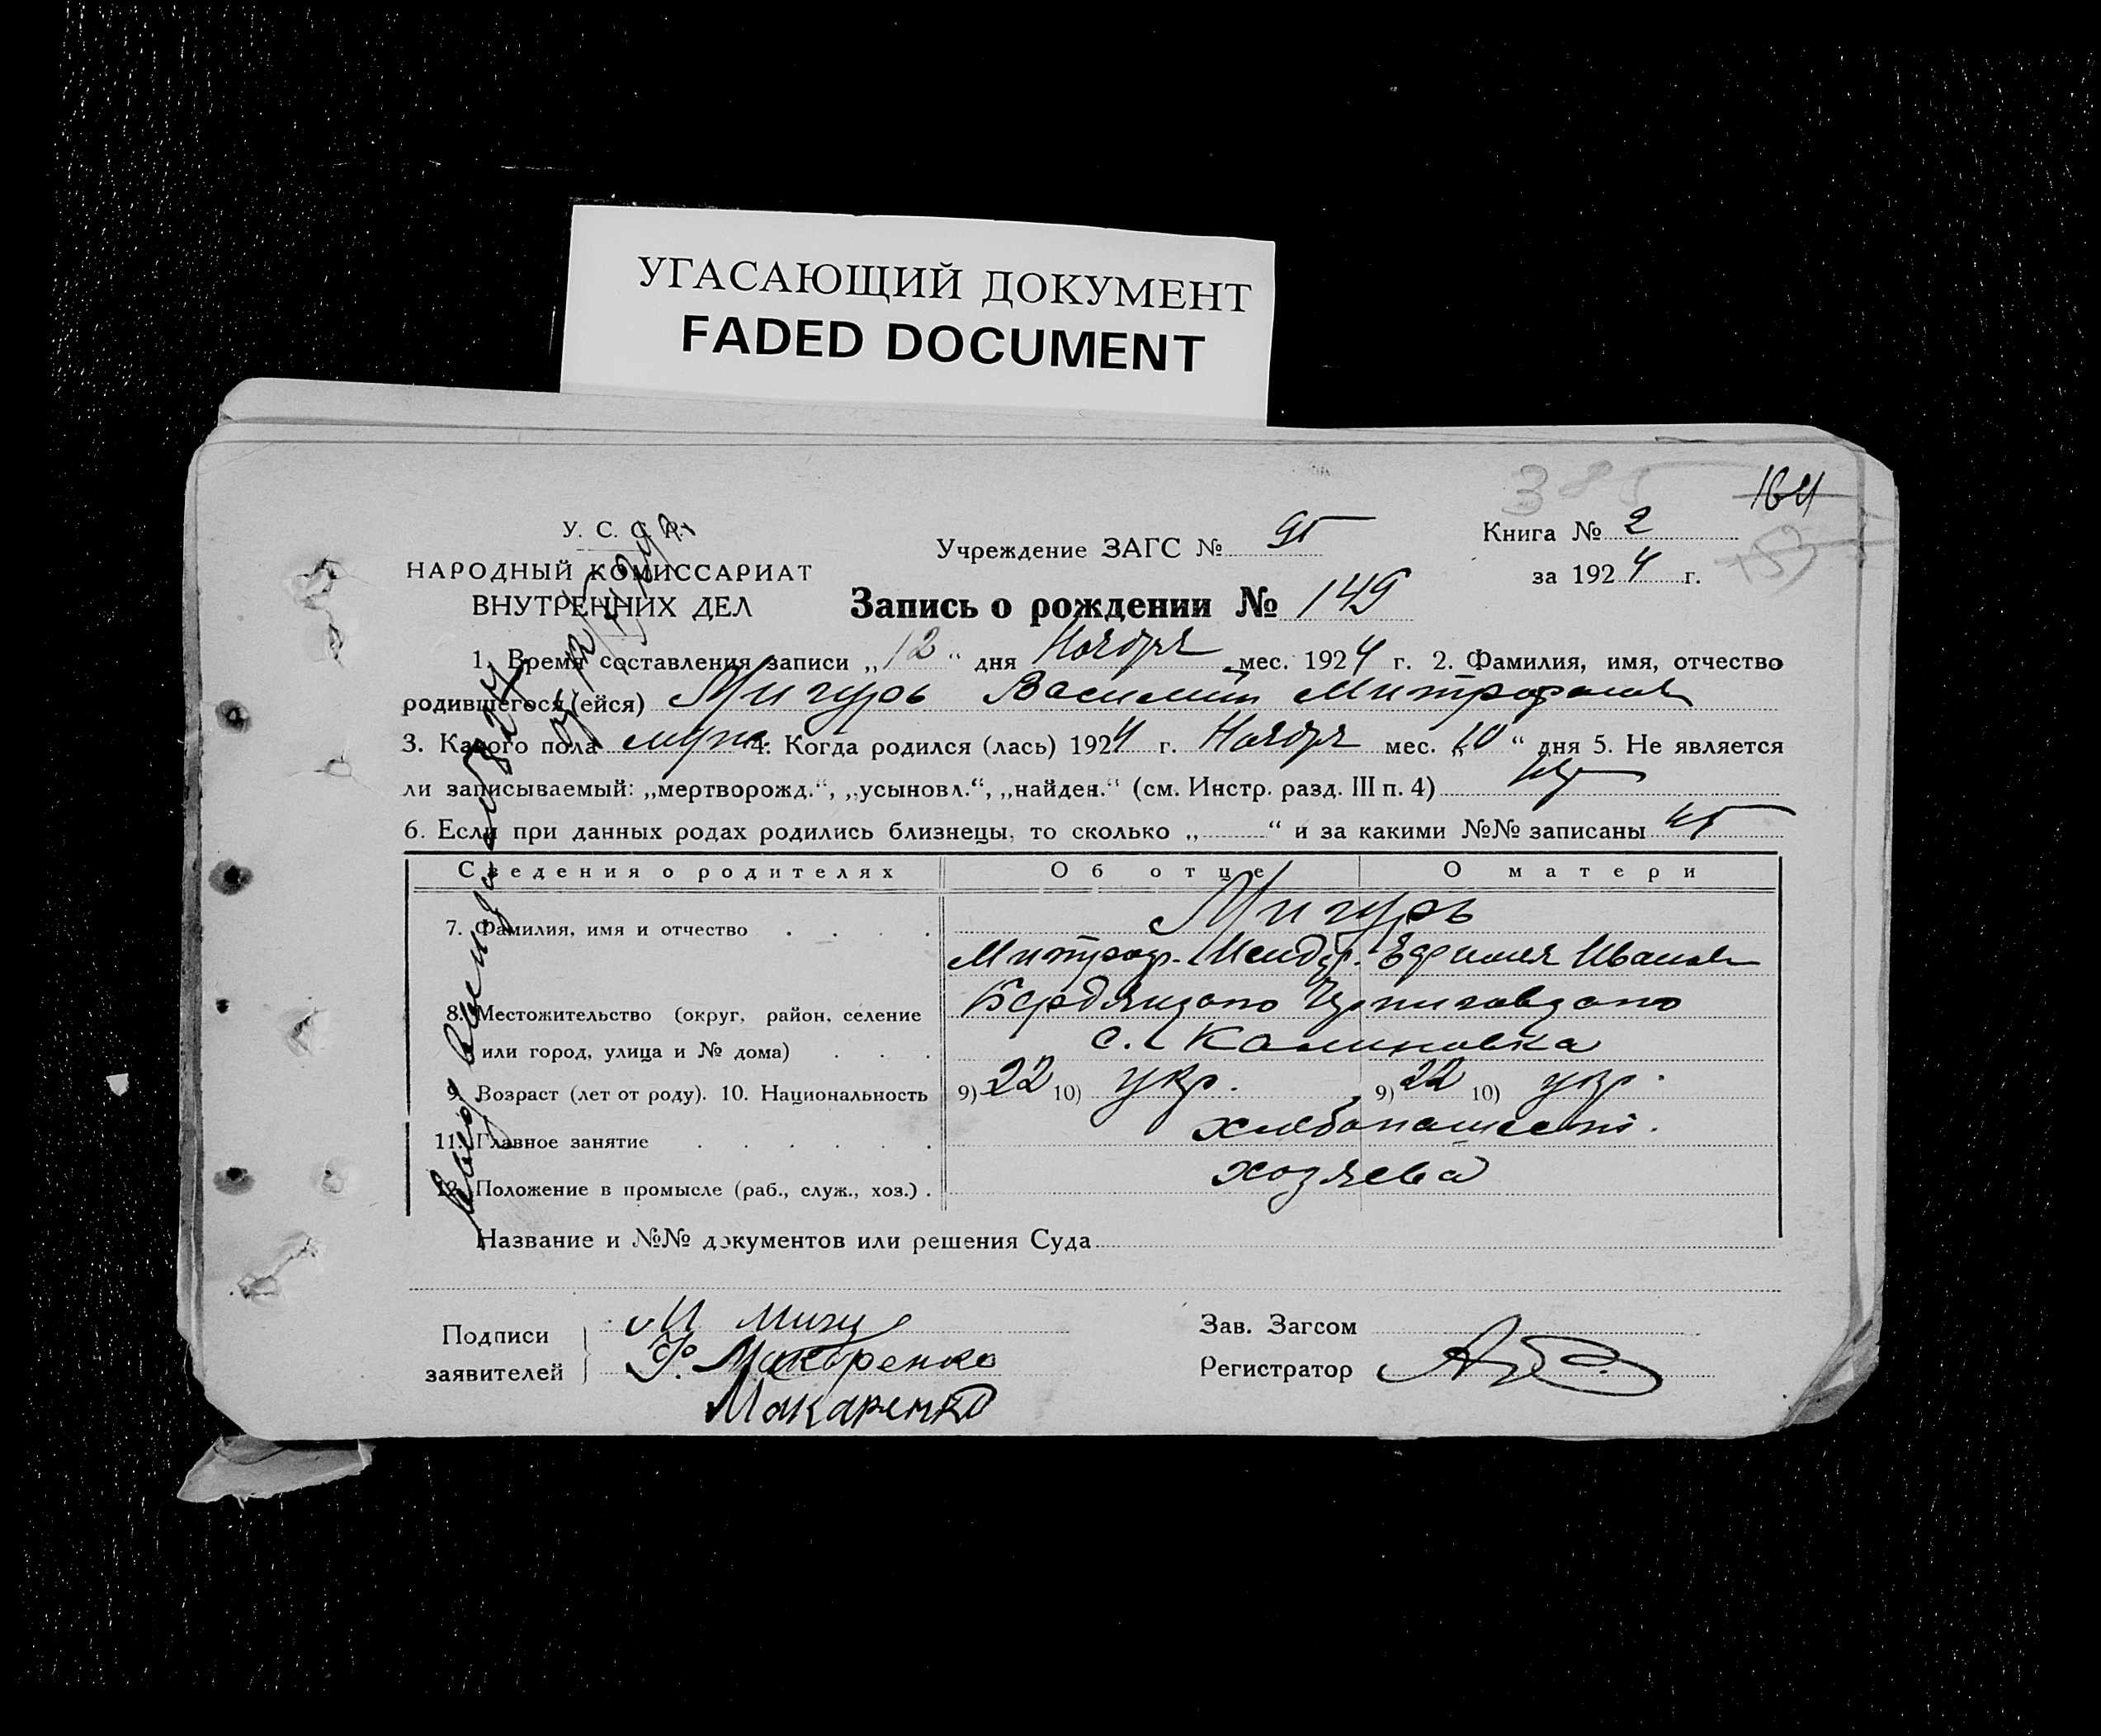 УГАСАЮЩИЙ ДОКУМЕНТ
FADED DOCUMENT
385
164
У. С. С. Р.
НАРОДНЫЙ КОМИССАРИАТ
ВНУТРЕННИХ ДЕЛ
Учреждение ЗАГС №
Книга № 2
за 1924 г.
Запись о рождении № 149
1. Время составления записи „12“ дня Ноября мес. 1924 г. 2. Фамилия, имя, отчество
родившегося (ейся) Мигурь Василий Митрофанов
3. Какого пола муж. 4. Когда родился (лась) 1924 г. Ноября мес. „10“ дня 5. Не является
ли записываемый: „мертворожд.“, „усыновл.“, „найден.“ (см. Инстр. разд. III п. 4) нет
6. Если при данных родах родились близнецы, то сколько „ “ и за какими №№ записаны нет
Сведения о родителях Об отце О матери
7. Фамилия, имя и отчество Мигурь
Митроф. Ефимия Иванов
8. Местожительство (округ, район, селение
или город, улица и № дома) с. Калиновка
9. Возраст (лет от роду). 10. Национальность 9) 22 10) укр. 9) 22 10) укр.
11. Главное занятие хлебопашество.
12. Положение в промысле (раб., служ., хоз.) хозяева
Название и №№ документов или решения Суда
Подписи
заявителей
М Мигу
Ф. Макаренко
Макаренко
Зав. Загсом
Регистратор